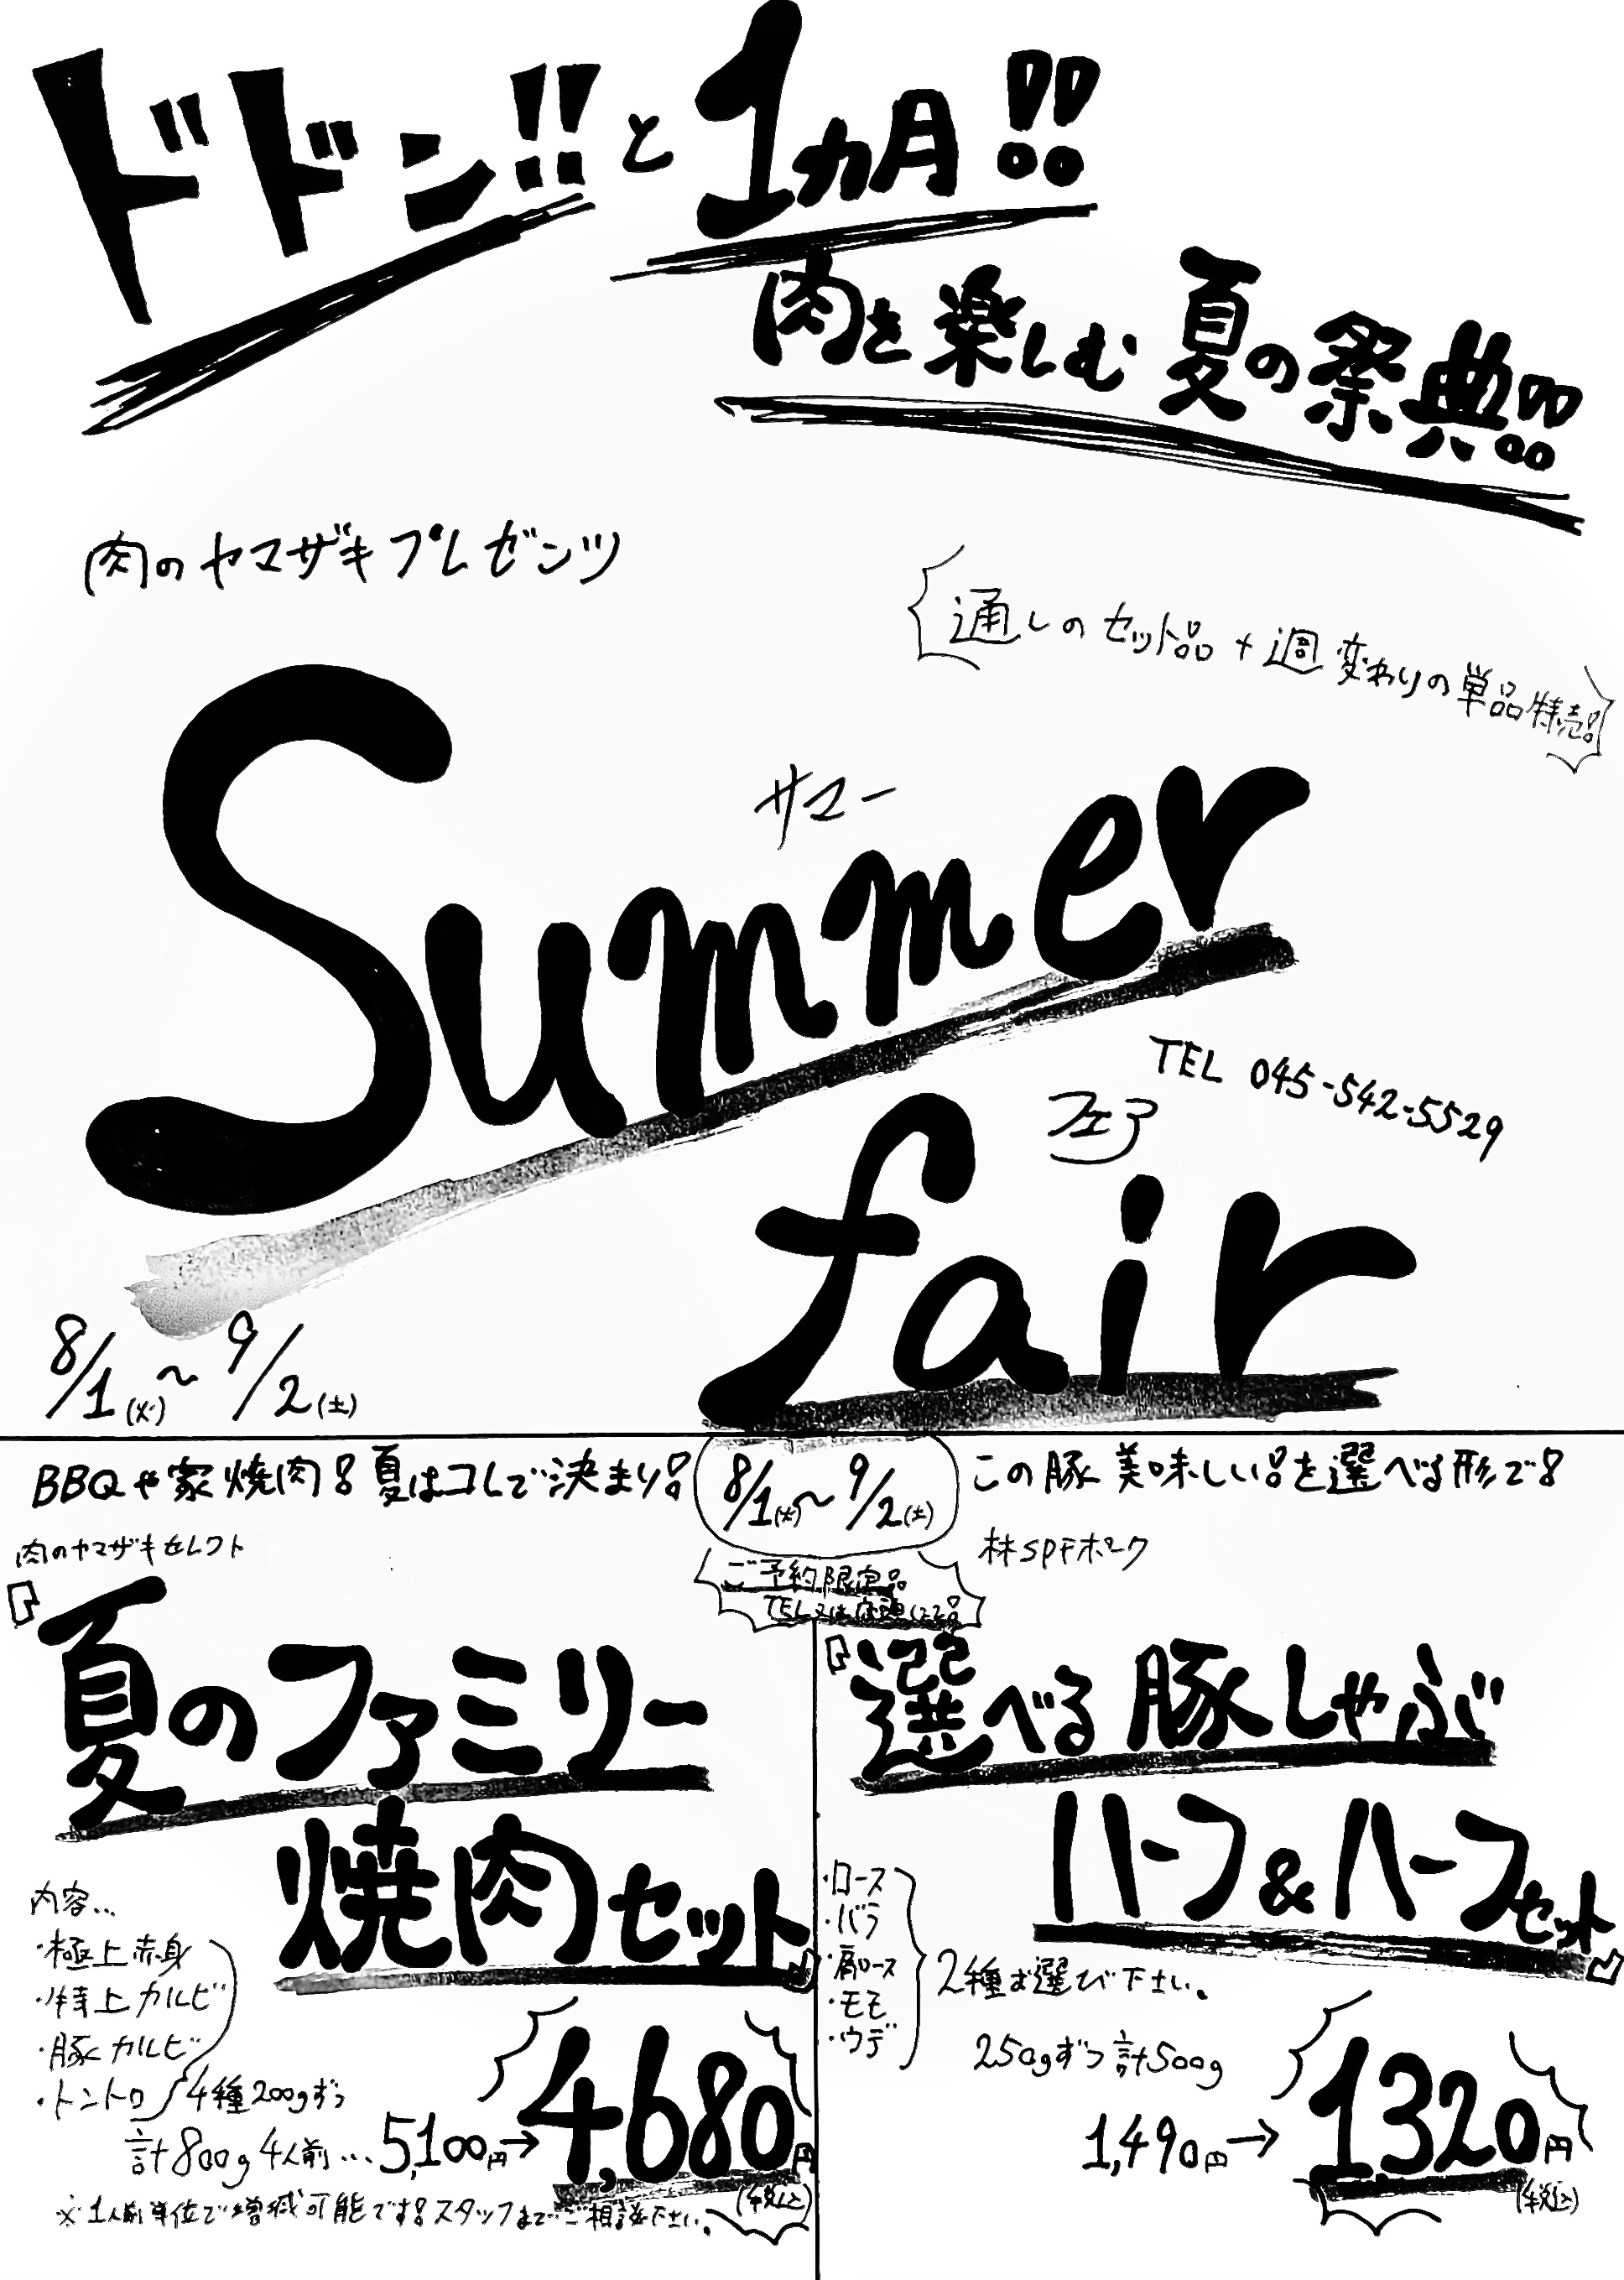 ドドン!!と1ヵ月!!
肉を楽しむ夏の祭典!!
肉のヤマザキプレゼンツ
通しのセット品+週変わりの単品特売!
サマー
Summer
TEL 045-542-5529
フェア
fair
8/1(火)~9/2(土)
BBQや家焼肉!夏はコレで決まり!
肉のヤマザキセレクト
『夏のファミリー
焼肉セット』
内容…
・極上赤身
・特上カルビ
・豚カルビ
・トントロ
4種200gずつ
計800g 4人前…5,100円→4,680円
(税込)
※1人前単位で増減可能です!スタッフまでご相談下さい。
8/1(火)~9/2(土)
ご予約限定品
TEL又は店頭にて!
この豚美味しい!を選べる形で!
林SPFポーク
『選べる豚しゃぶ
ハーフ&ハーフセット』
・ロース
・バラ
・肩ロース
・モモ
・ウデ
2種お選び下さい。
250gずつ計500g
1,490円→1320円
(税込)